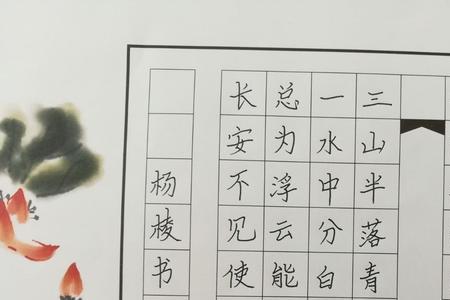 三山半落青
一水中分白
总为浮云能
长安不见使
杨棱书